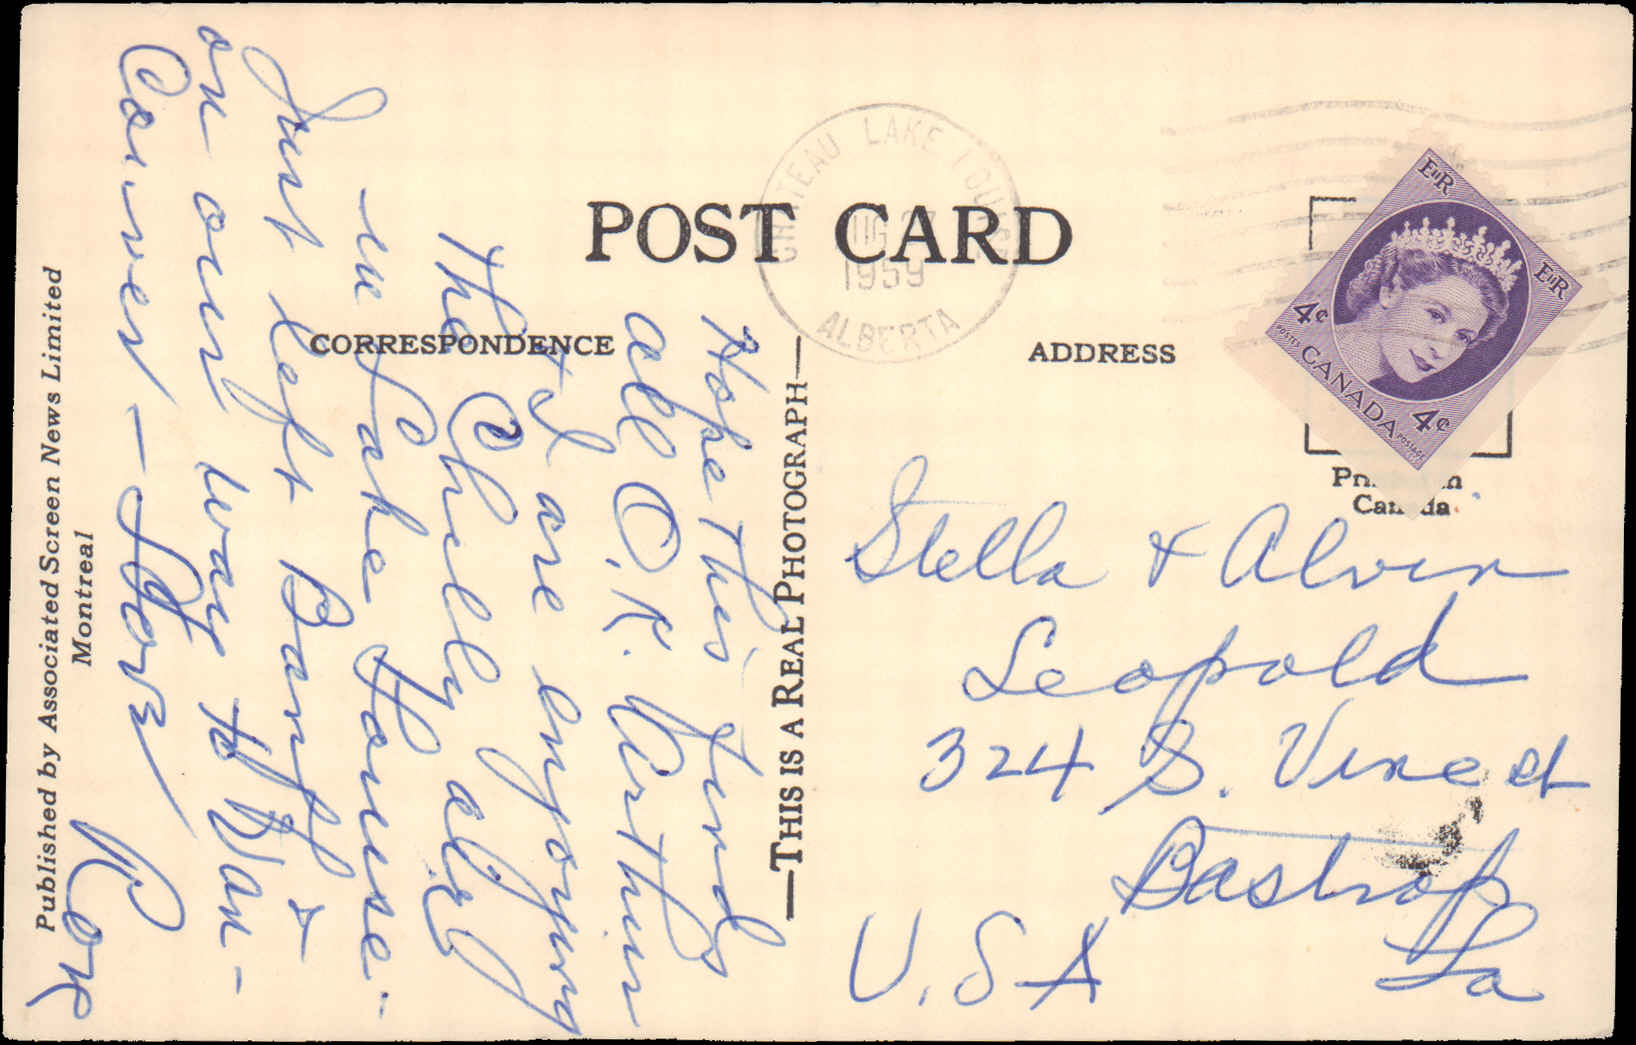 POST CARD
CORRESPONDENCE
ADDRESS
Hope this finds
all O.K. Arthur
+ I are enjoying
the Chilly air
in Lake Louise.
Just left Banff +
on our way to Van-
Couver — Love
Published by Associated Screen News Limited
Montreal
—THIS IS A REAL PHOTOGRAPH—
CHATEAU LAKE LOUISE
AUG 27
1959
ALBERTA
EIIR
EIIR
4¢
4¢
POSTES CANADA POSTAGE
Printed in
Canada
Stella + Alvin
Leopold
324 S. Vine st
Bastrop
La
U.S.A